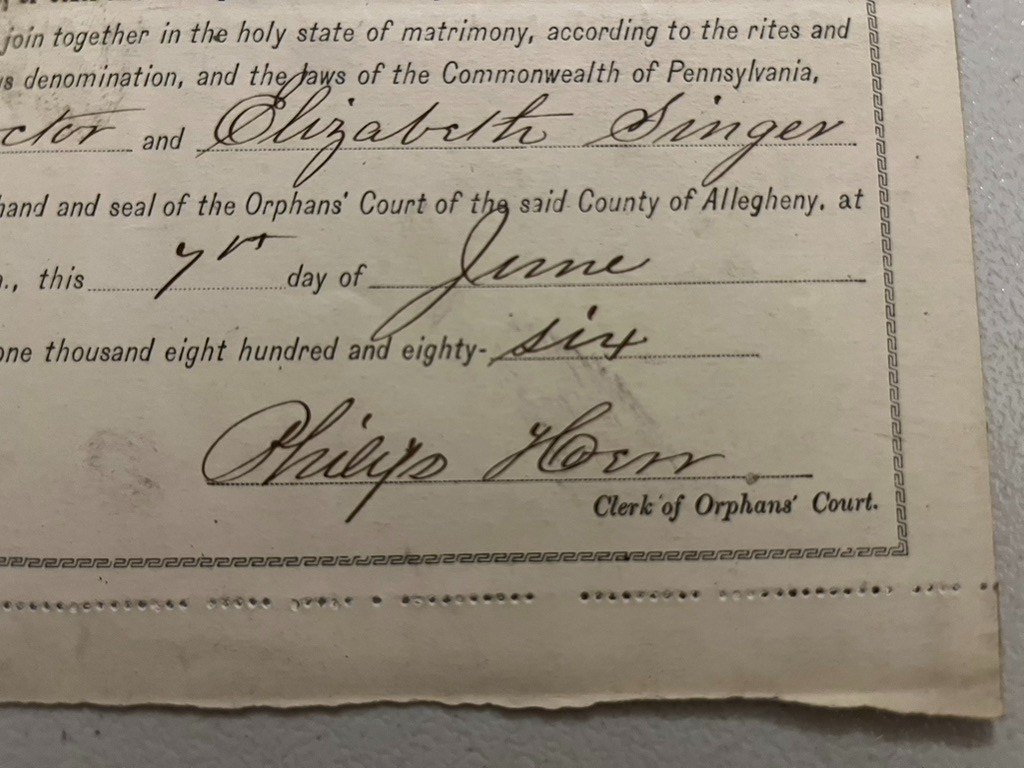 join together in the holy state of matrimony, according to the rites and
denomination, and the laws of the Commonwealth of Pennsylvania,
ctor and Elizabeth Singer
hand and seal of the Orphans' Court of the said County of Allegheny, at
this 7th day of June
one thousand eight hundred and eighty- six
Hoerr
Clerk of Orphans' Court.